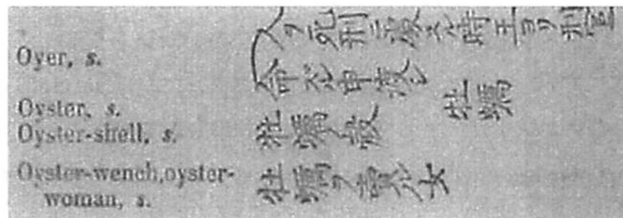 Oyer, s. 人ヲ死刑ニ處スル時王ヨリ刑官
命ズル申渡シ
Oyster, s. 牡蠣
Oyster-shell, s. 牡蠣ノ殻
Oyster-wench,oyster- 牡蠣ヲ賣ル女
woman, s.